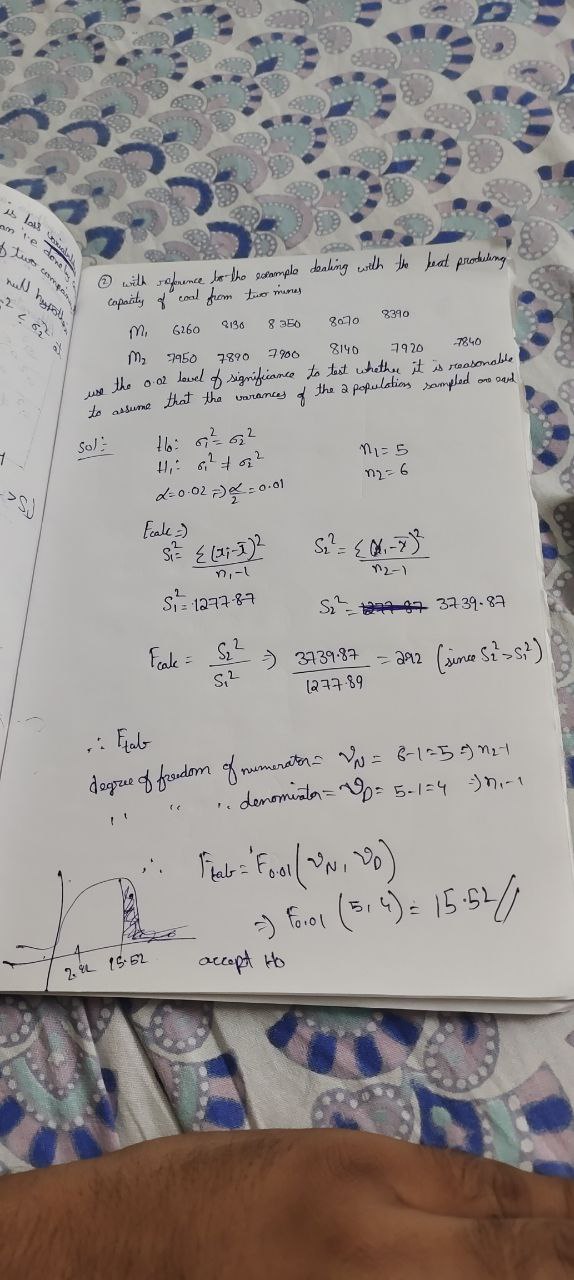 is less variable
null hypoth
② with reference to the example dealing with the heat produling
capacity of coal from two mines
M₁ 6260 8130 8350 8070 8390
M₂ 7950 7890 7900 8140 7920 7840
use the 0.02 level of significance to test whether it is reasonable
to assume that the variances of the 2 populations sampled are
Sol:
H₀: σ₁² = σ₂²
n₁ = 5
H₁: σ₁² ≠ σ₂²
n₂ = 6
α = 0.02 ⇒ α/2 = 0.01
Fcalc ⇒
S₁² = Σ(xᵢ-x̄)²/n₁-1 S₂² = Σ(xᵢ-ȳ)²/n₂-1
S₁² = 1277.87 S₂² = 1277.87 3739.87
Fcalc = S₂²/S₁² ⇒ 3739.87/1277.89 = 292 (since S₂² > S₁²)
∴ Ftab
degree of freedom of numerator = νN = 6-1=5 ⇒ n₂-1
" " " denominator = νD = 5-1=4 ⇒ n₁-1
∴ Ftab = F0.01 (νN, νD)
⇒ F0.01 (5,4) = 15.52//
2.92 15.52 accept H₀